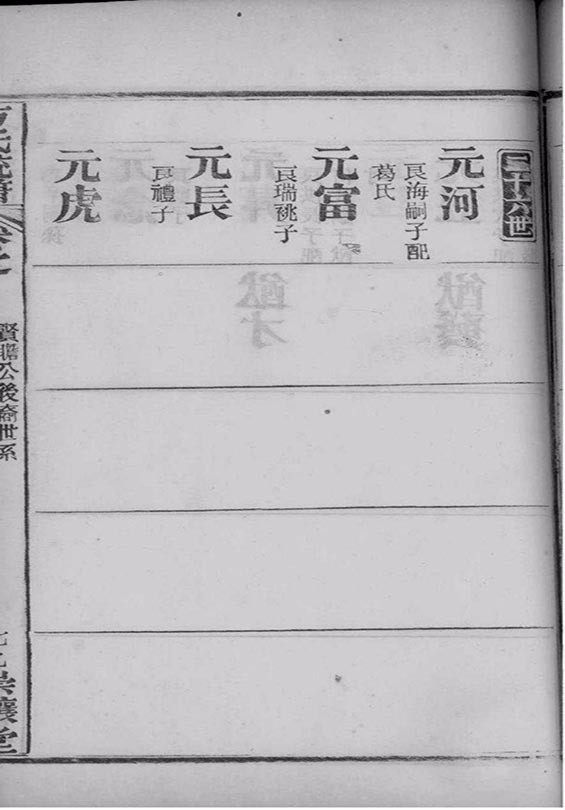 二十六世
元河
良海嗣子配
葛氏
元富
良瑞祧子
元長
良禮子
元虎
公後裔世系